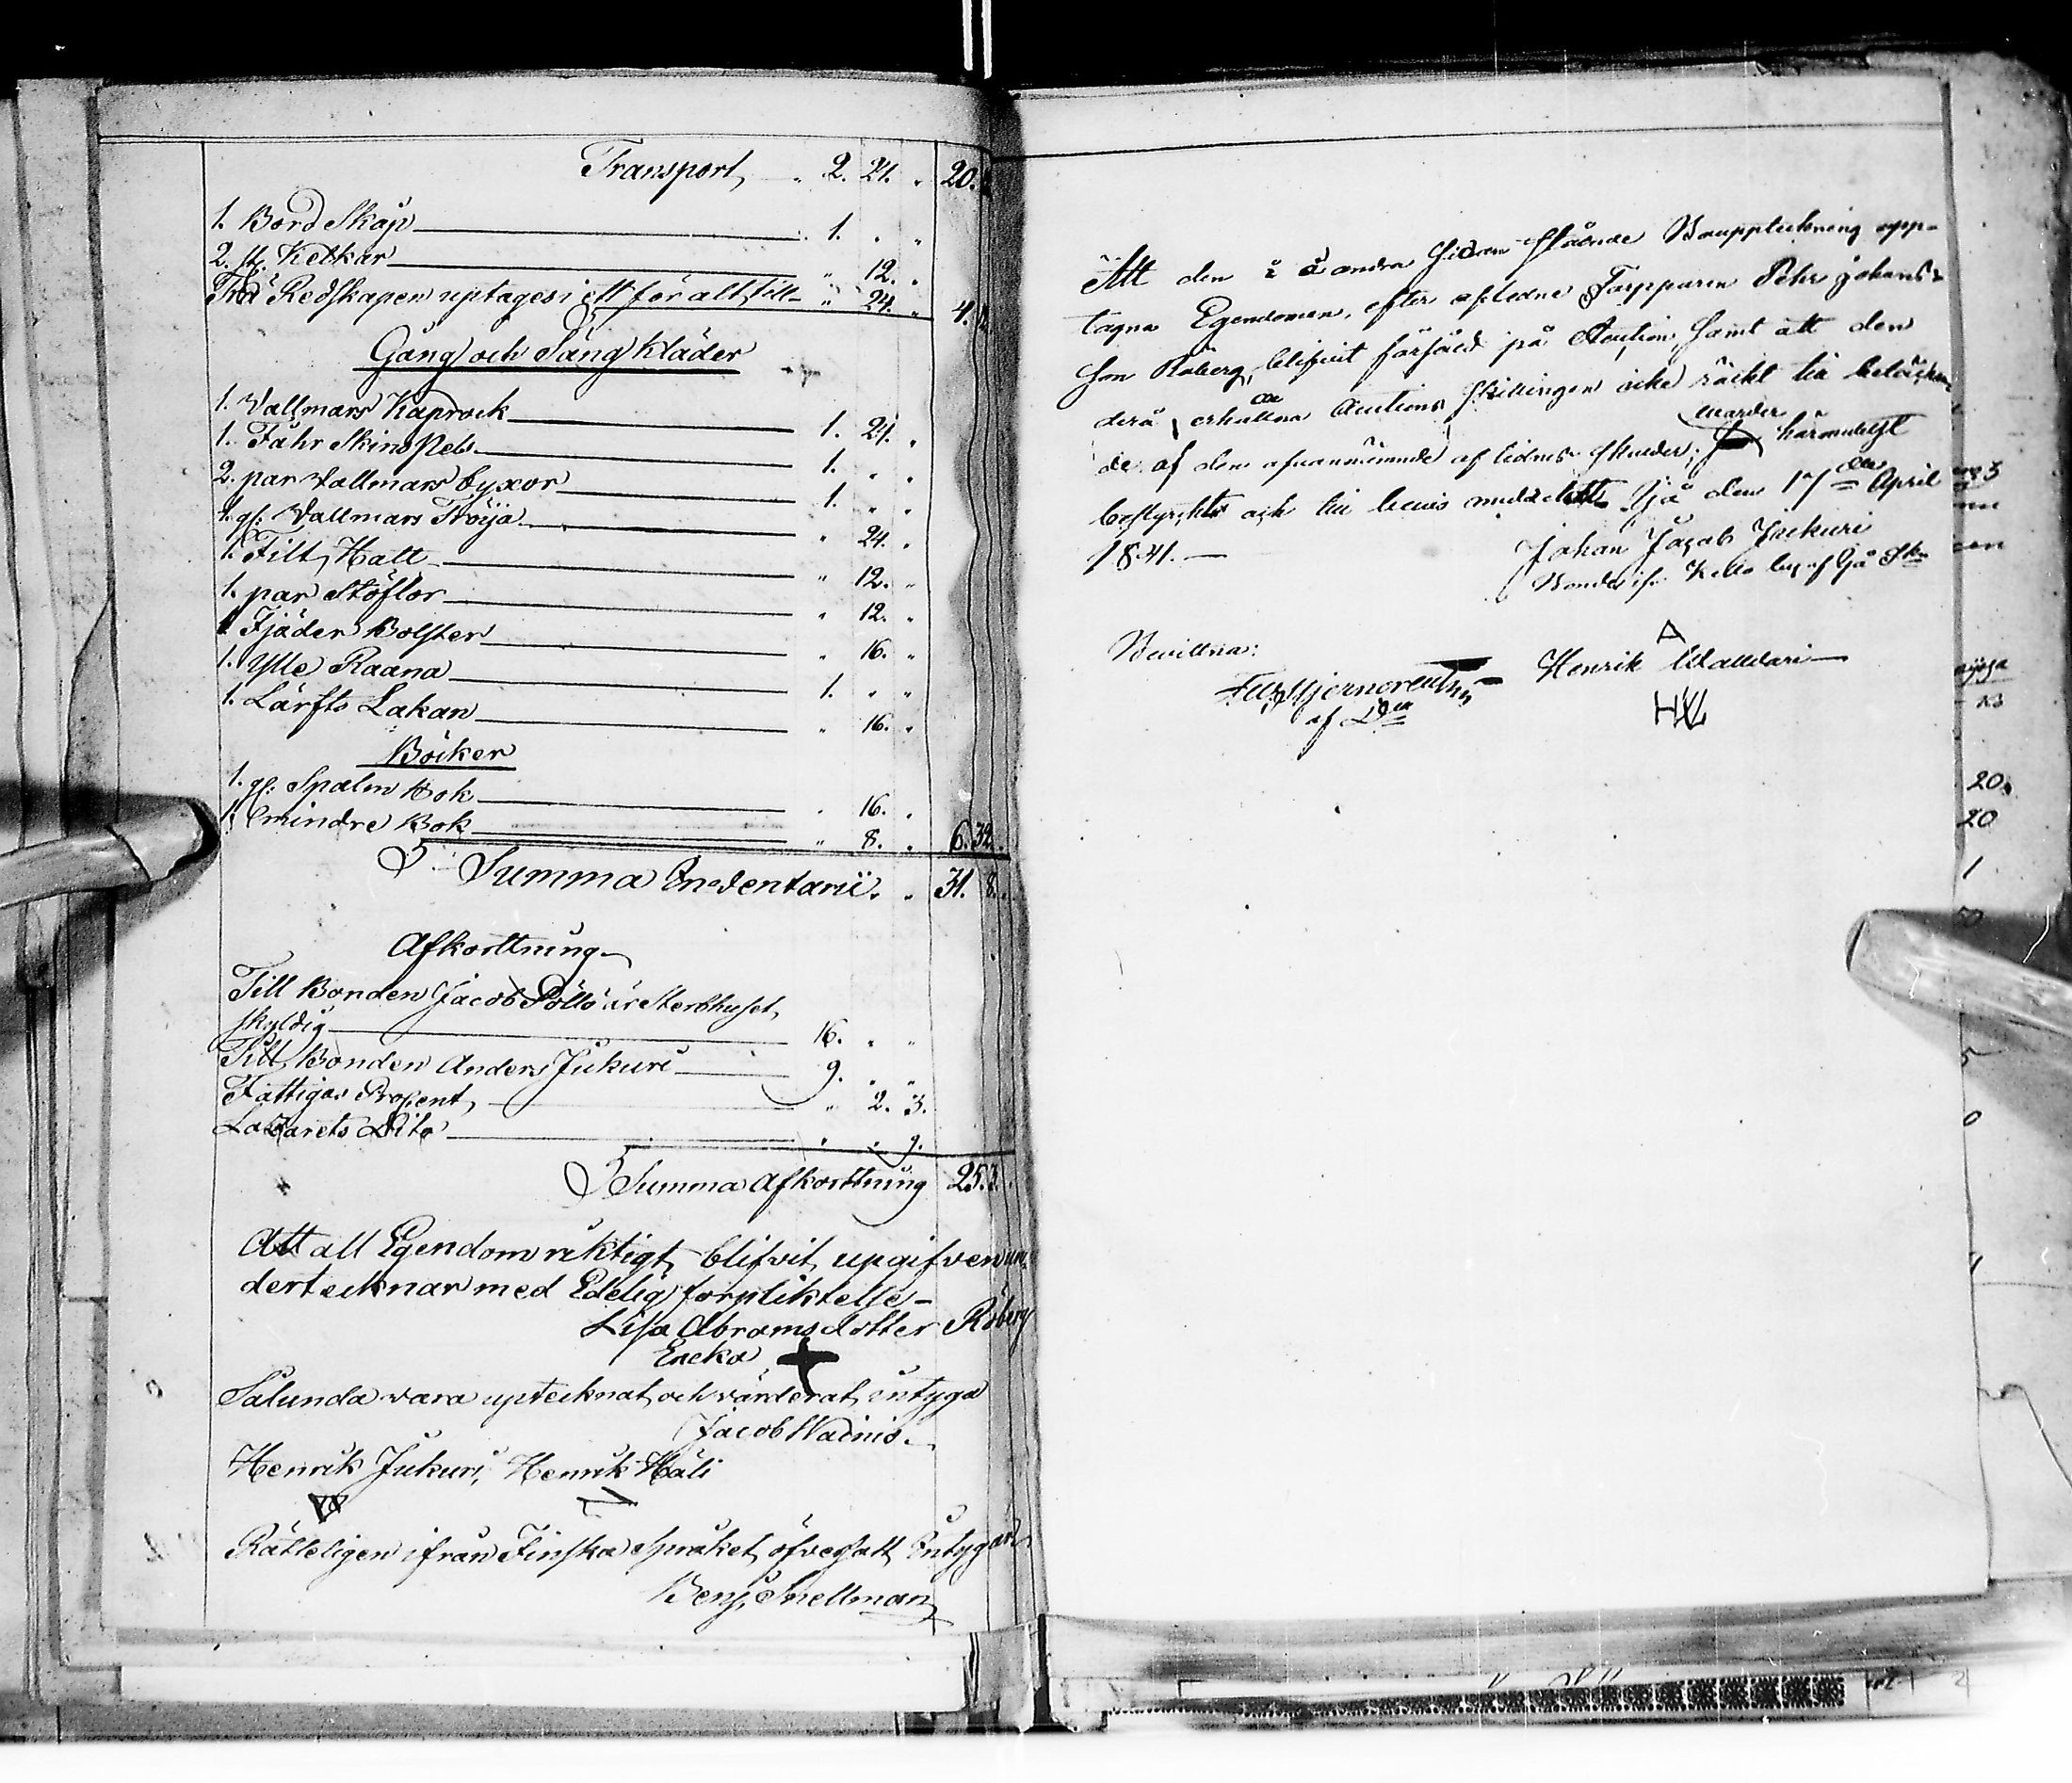 Transport, " 2. 24. " 20.
1. Bord Skåp " 1. " "
2. st. Kelkar " 12. "
Träd Redskapen uptages i ett för alt till " 24. " 4.
Gång och Säng Kläder
1. Vallmars Kaprock 1. 24. "
1. Fåhr Skins Pels 1. " "
2. par Vallmars byxor 1. " "
1. gl: Vallmars Tröija " 24. "
1. Filt Hatt " 12. "
1. par Stöflor " 12. "
1 Fjäder Bolster " 16. "
1. Ylle Raana 1. " "
1. Lärfts Lakan " 16. "
Böcker
1. gl: Spalm Bok " 16. "
1. mindre Bok " 8. " 6. 32.
Summa Inventarii " " 31. 8.
Afkorttning
Till Bonden Jacob Pöllö är Sterbhuset
skyldig 16. " "
Till Bonden Anders Jukuri 9. " "
Fattigas Procent, " 2. 3.
Lazarets Dito " " 9.
Summa Afkorttning 25. 3.
Att all Egendom riktigt blifvit upgifven un
dertecknar med Edelig förpliktelse
Lisa Abramsdotter Råberg
Encka
Sålunda vara uptecknat och värderat, intyga
Jacob Wainio
Henrik Jukuri, Henrik Häli
Rätteligen ifrån Finska Språket öfversatt Intygar
Benj. Snellman
Att den å andra sidan stående Bouppteckning upp-
tagna Egendomen, efter afledne Torpparen Pehr Johans-
son Råberg, blifvit försåld på Auction samt att den
derå erhållna Auctions Skillingen icke räckt till betäckan
de af den afvannämnde aflidnes skulder; warder härmedelst
bestyrckt och till bevis meddelat. Ijå den 17de April
1841.
Johan Jacob Jukuri
Bevittna:
A
Henrik Waldari
HW
af Ijå
20.
20
1
5
0